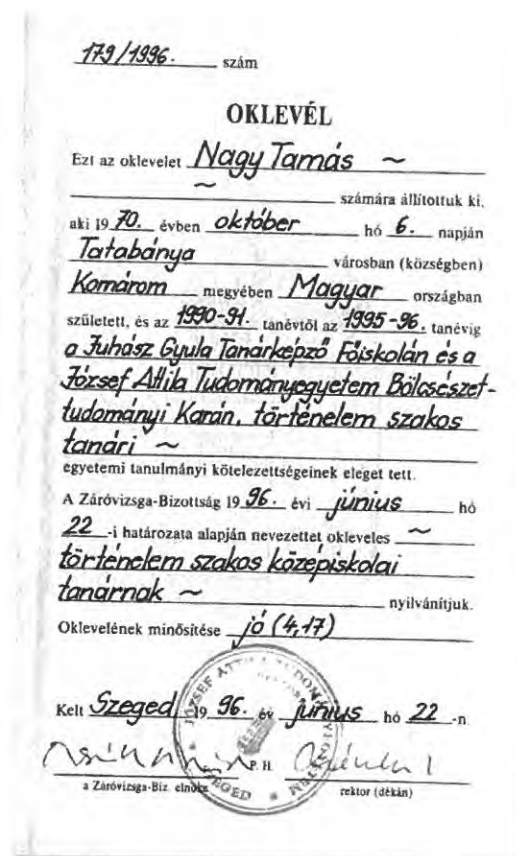 179/1996. szám
OKLEVÉL
Ezt az oklevelet Nagy Tamás ~
~ számára állítottuk ki,
aki 1970. évben október hó 6. napján
Tatabánya városban (községben)
Komárom megyében Magyar országban
született, és az 1990-91. tanévtől az 1995-96. tanévig
a Juhász Gyula Tanárképző Főiskolán és a
József Attila Tudományegyetem Bölcsészet-
tudományi Karán, történelem szakos
tanári ~
egyetemi tanulmányi kötelezettségeinek eleget tett.
A Záróvizsga-Bizottság 1996. évi június hó
22-i határozata alapján nevezettet okleveles ~
történelem szakos középiskolai
tanárnak ~ nyilvánítjuk.
Oklevelének minősítése jó (4,17)
Kelt Szeged 1996. év június hó 22-n
P. H.
a Záróvizsga-Biz. elnöke rektor (dékán)
JÓZSEF ATTILA TUDOMÁNYEGYETEM * SZEGED *